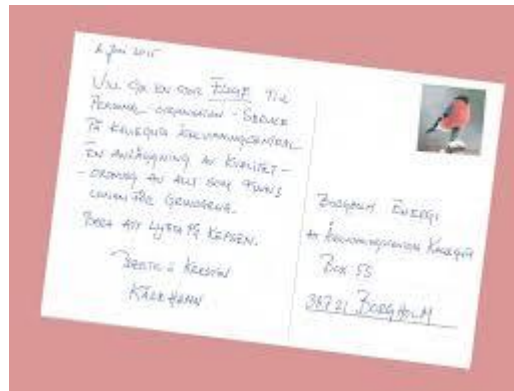 2 juni 2015
Vill ge en stor Eloge till
Personal organisation - Service
på Kalleguta Återvinningscentral
En anläggning av kvalitet -
- ordning av allt som finns
innanför grindarna.
Bara att lyfta på kepsen.
Bertil & Kerstin
Källhamn
Borgholm Energi
Återvinningscentral Kalleguta
Box 55
38721 Borgholm